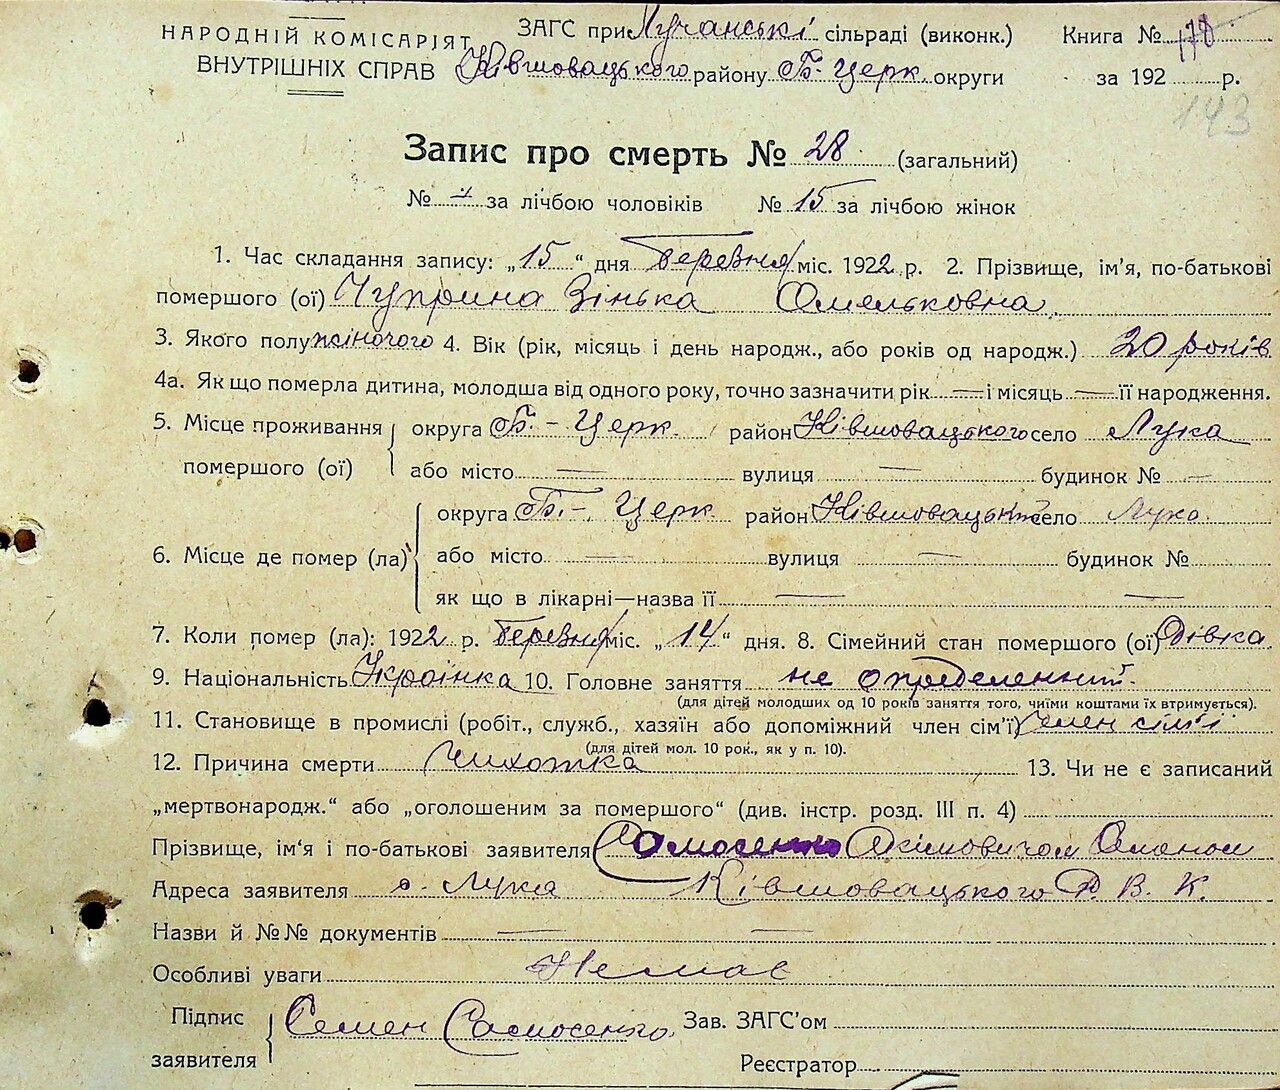 НАРОДНІЙ КОМІСАРІЯТ
ВНУТРІШНІХ СПРАВ
ЗАГС при Лучанській сільраді (виконк.)
Ківшовацького району Б-Церк. округи
Книга № 178
за 192 р.
143
Запис про смерть № 28 (загальний)
№ — за лічбою чоловіків № 15 за лічбою жінок
1. Час складання запису: „15“ дня березня міс. 1922 р. 2. Прізвище, ім'я, по-батькові
помершого (ої) Чуприна Зінька Омельковна
3. Якого полу жіночого 4. Вік (рік, місяць і день народж., або років од народж.) 20 років
4а. Як що померла дитина, молодша від одного року, точно зазначити рік — і місяць — її народження.
5. Місце проживання помершого (ої) округа Б.-Церк. район Ківшовацького село Лука
або місто — вулиця — будинок № —
6. Місце де помер (ла) округа Б.-Церк район Ківшовацьк село Лука
або місто — вулиця — будинок №
як що в лікарні—назва її — —
7. Коли помер (ла): 1922 р. березня міс. „14“ дня. 8. Сімейний стан помершого (ої) Дівка
9. Національність Українка 10. Головне заняття не определенний.
(для дітей молодших од 10 років заняття того, чиїми коштами їх втримується).
11. Становище в промислі (робіт., служб., хазяїн або допоміжний член сім'ї) член сімї
(для дітей мол. 10 рок., як у п. 10).
12. Причина смерти Чихотка 13. Чи не є записаний
„мертвонародж.“ або „оголошеним за помершого“ (див. інстр. розд. III п. 4)
Прізвище, ім'я і по-батькові заявителя Самосенко
Адреса заявителя с. Лука Ківшовацького Р. В. К.
Назви й №№ документів — —
Особливі уваги Немає
Підпис заявителя Семен Самосенко Зав. ЗАГС'ом
Реєстратор